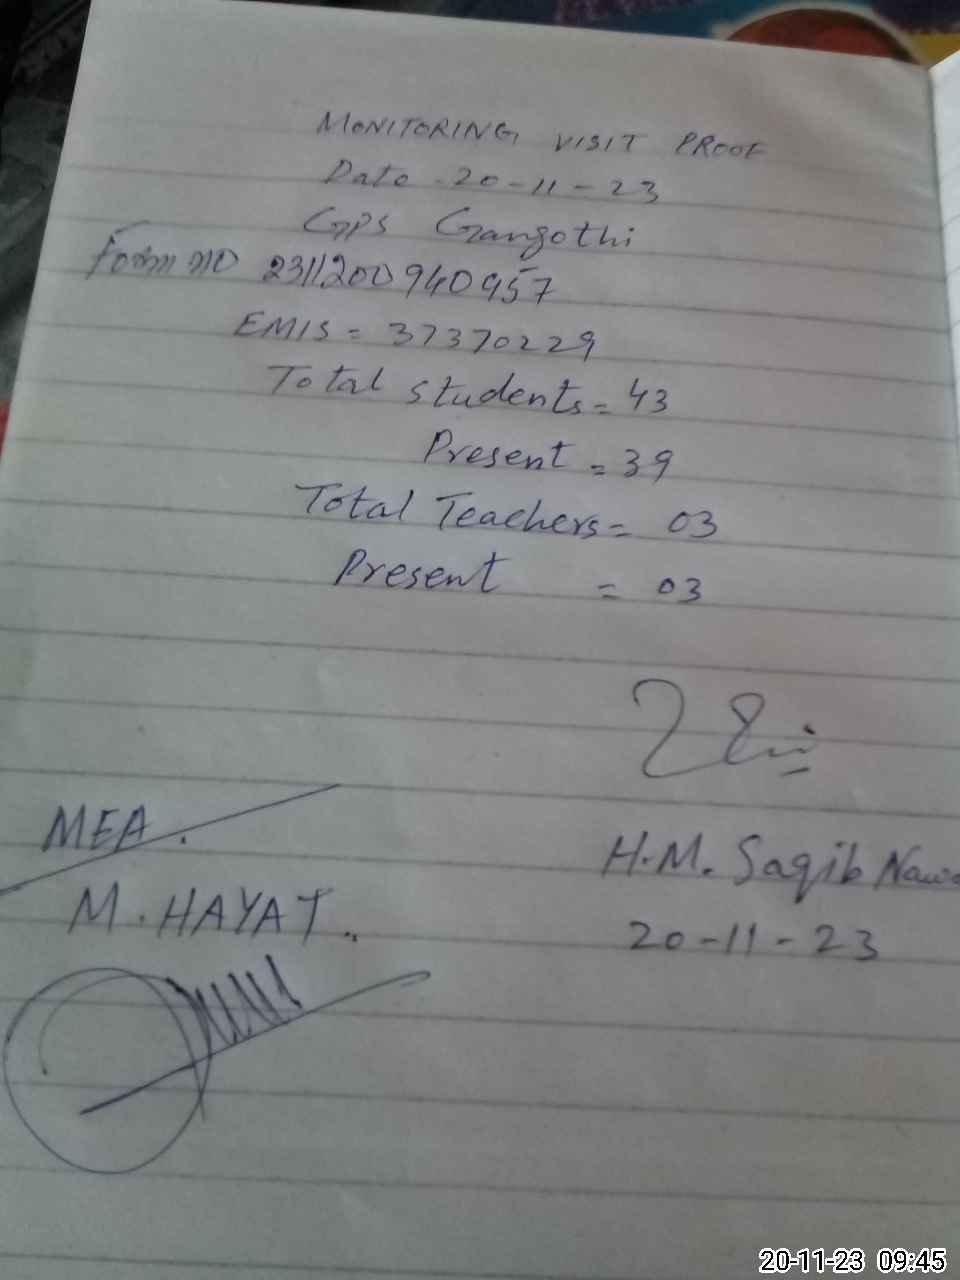 MONITORING VISIT PROOF
Date - 20-11-23
GPS Gangothi
Form no 231120094​0957
EMIS = 37370229
Total students = 43
Present = 39
Total Teachers = 03
Present = 03
MEA.
H.M. Saqib
M. HAYAT..
20-11-23
20-11-23 09:45